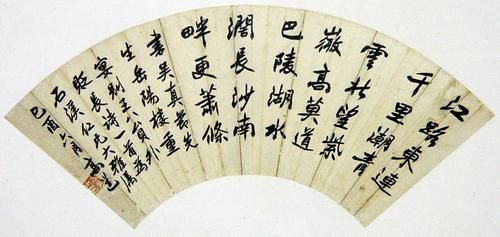 江路東連
千里潮青
雲北望紫
薇高莫道
巴陵湖水
濶長沙南
畔更蕭條
書吳真先
生岳陽樓重
宴別王八員外
貶長詩一首為
石溪仁兄大雅屬
己酉六月高邕